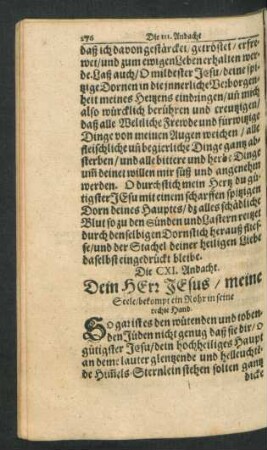 276 Die III. Andacht
daß ich davon gestärcket, getröstet / erfre-
wet / und zum ewigen Leben erhalten wer-
de. Laß auch / O mildester Jesu / deine spi-
tzige Dornen in die innerliche Verborgen-
heit meines Hertzens eindringen / uñ mich
also würcklich berühren und creutzigen /
daß alle Weltliche Frewde und fürwitzige
Dinge von meinen Augen weichen / alle
fleischliche uñ begierliche Dinge gantz ab-
sterben / und alle bittere und herbe Dinge
um̃ deinet willen mir süß und angenehm
werden. O durchstich mein Hertz du gü-
tigster JEsu mit einem scharffen spitzigen
Dorn deines Hauptes / dz alles schädliche
Blut so zu den Sünden und Lastern reitzet
durch denselbigen Dornstich herauß flies-
se / und der Stachel deiner heiligen Liebe
daselbst eingedrückt bleibe.
Die CXI. Andacht.
Dein HErr JEsus / meine
Seele / bekompt ein Rohr in seine
rechte Hand.
SO gar ist es den wütenden und toben-
den Jüden nicht genug daß sie dir / O
gütigster Jesu / dein hochheiliges Haupt
an dem lauter glentzende und helleuchti-
de Him̃els Sternlein stehen solten gantz
dicke